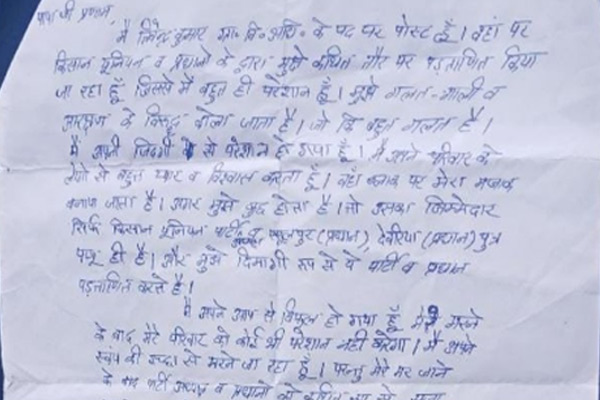 पापा जी प्रणाम,
मैं जितेन्द्र कुमार ग्रा० वि० अधि० के पद पर पोस्ट हूँ। वहां पर
किसान यूनियन व प्रधानो के द्वारा मुझे कथित तौर पर पड़ताणित किया
जा रहा हूँ जिससे में बहुत ही परेशान हूँ। मुझे गलत-गाली व
आरक्षण के विरुद्ध बोला जाता है। जो कि बहुत गलत है।
मैं अपनी जिदगी से परेशान हो गया हूँ। मैं अपने परिवार के
लोगो से बहुत प्यार व विश्वास करता हूँ। वहाँ ब्लाक पर मेरा मजाक
बनाया जाता है। अगर मुझे कुछ होता है। तो उसका जिम्मेदार
सिर्फ किसान यूनियन पार्टी (प्रधान), देवरिया (प्रधान) पुत्र
पप्पू ही है। और मुझे दिमागी रूप से ये पार्टी व प्रधान
पड़ताणित करते है।
मैं अपने आप से विफल हो गया हूँ मेरे मरने
के बाद मेरे परिवार को कोई भी परेशान नही करेगा। मैं अपने
स्वयं की इच्छा से मरने जा रहा हूँ। परन्तु मेरे मर जाने
के बाद पार्टी अध्यक्ष व प्रधानो को कथित रूप से